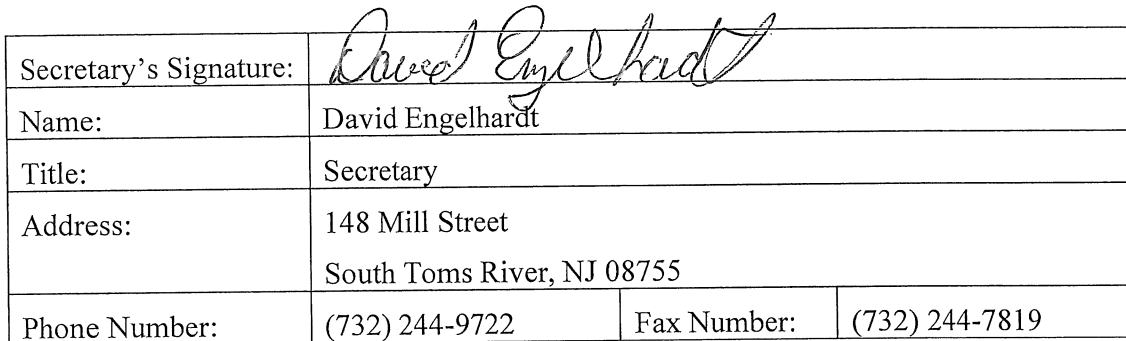 Secretary's Signature: David Engelhardt
Name: David Engelhardt
Title: Secretary
Address: 148 Mill Street
South Toms River, NJ 08755
Phone Number: (732) 244-9722 Fax Number: (732) 244-7819